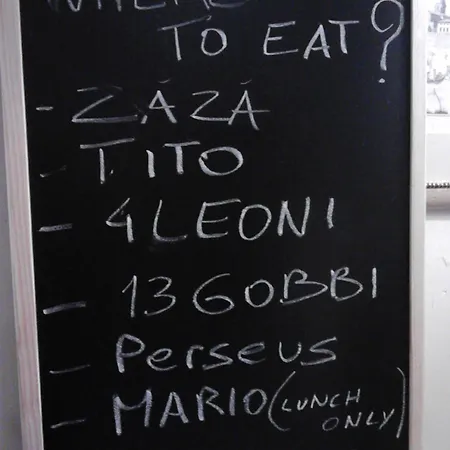 WHERE
TO EAT?
- ZÁZÁ
- TITO
- 4 LEONI
- 13 GOBBI
- Perseus
- MARIO (LUNCH
ONLY)